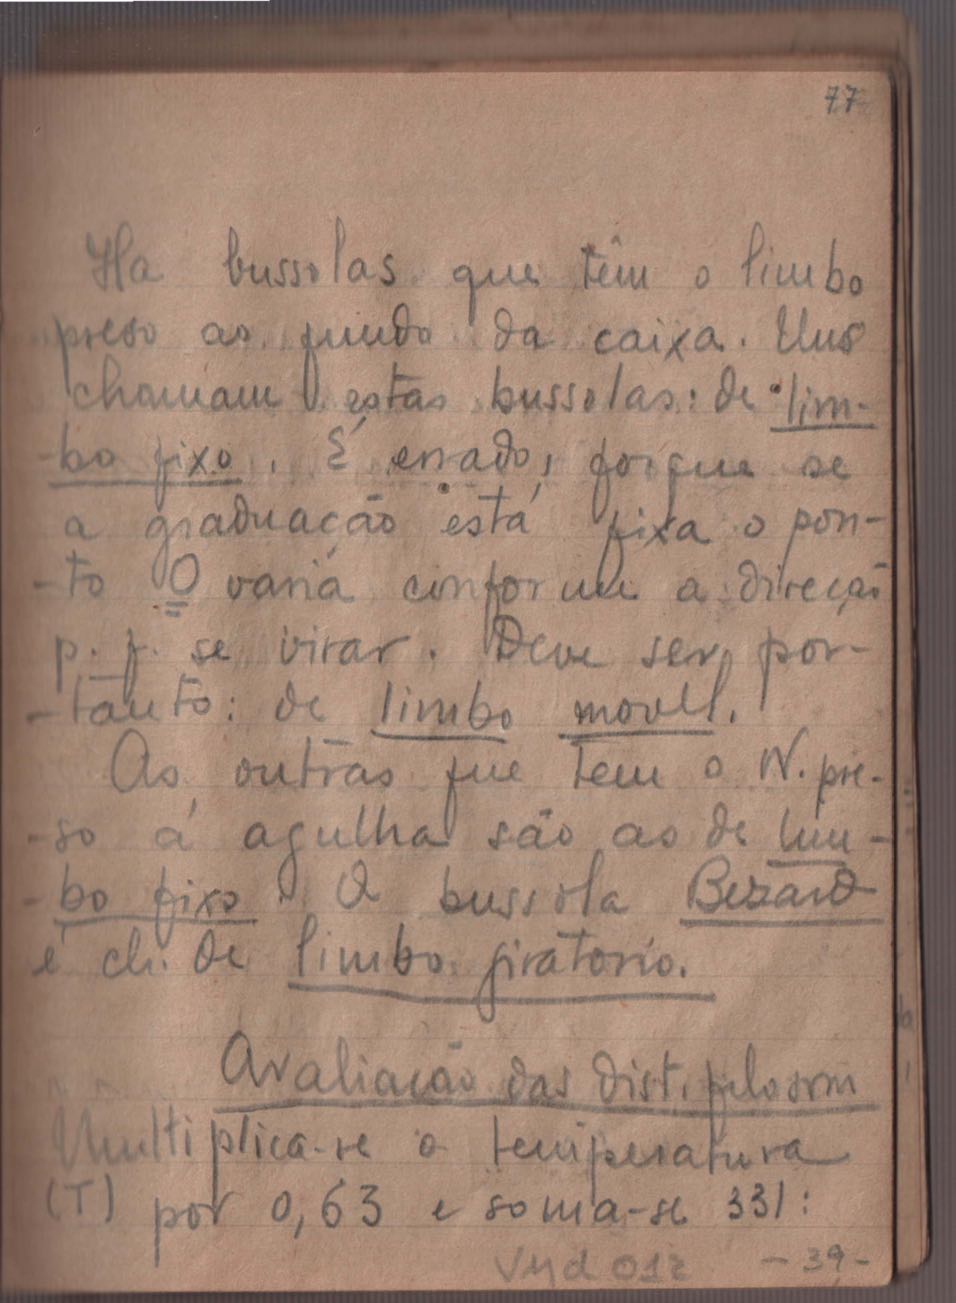 77
Ha bussolas que têm o limbo
preso ao fundo da caixa. Uns
chamam estas bussolas: de lim-
-bo fixo. É errado, porque se
a graduação está fixa o pon-
-to O varia conforme a direção
p. q. se virar. Deve ser, por-
-tanto: de limbo movel.
As outras que tem o N. pre-
-so á agulha são as de lim-
-bo fixo. A bussola Bezard
é ch. de limbo giratorio.
Avaliação das dist. pelo som
Multiplica-se a temperatura
(T) por 0,63 e soma-se 331:
- 39 -